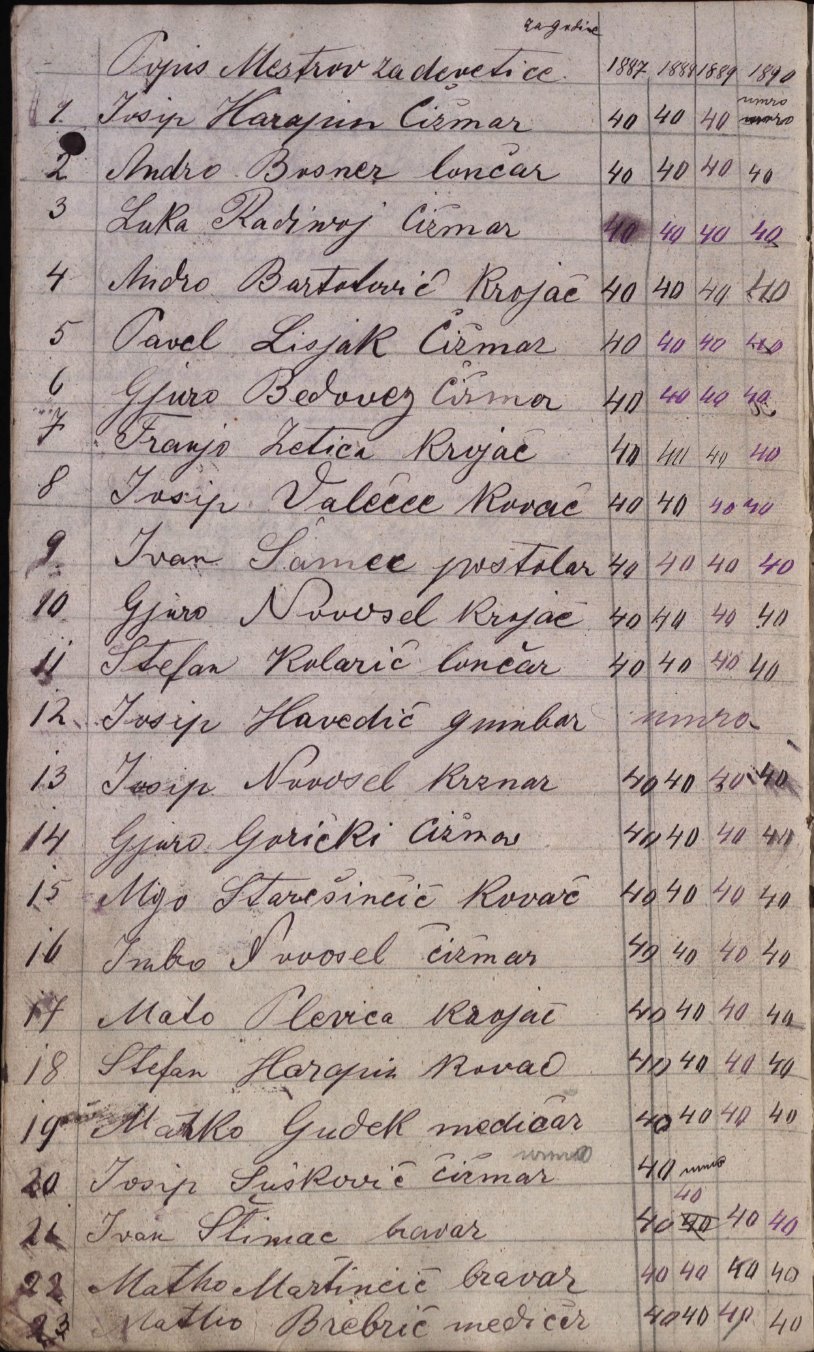 za godine
Popis Mestrov za devetice 1887 1888 1889 1890
umro
1. Josip Harapin Čižmar 40 40 40 umro
2 Andro Bosnez lončar 40 40 40 40
3 Luka Radiwoj Čižmar 40 40 40 40
4 Andro Bartolović Krojač 40 40 40 40
5 Pavel Lisjak Čižmar 40 40 40 40
6 Gjuro Bedovez Čižmar 40 40 40 40
7 Franjo Zetica Krojač 40 40 40 40
8 Josip Valečec Kovač 40 40 40 40
9. Ivan Šamec postolar 40 40 40 40
10 Gjuro Novosel Krojač 40 40 40 40
11 Stefan Kolarić lončar 40 40 40 40
12. Josip Havedić gumbar umro
13 Josip Novosel Krznar 40 40 40 40
14 Gjuro Gorički Čižmar 40 40 40 40
15 Mijo Starešinčić Kovač 40 40 40 40
16 Imbro Novosel čižmar 40 40 40 40
17 Mato Plevica Krojač 40 40 40 40
18 Stefan Harapin Kovač 40 40 40 40
19 Matko Gudek medičar 40 40 40 40
umro
20 Josip Sušković čižmar 40 umro
40
21 Ivan Štimac bravar 40 40 40 40
22 Matho Martinčić bravar 40 40 40 40
23 Matho Brebrić medičar 40 40 40 40